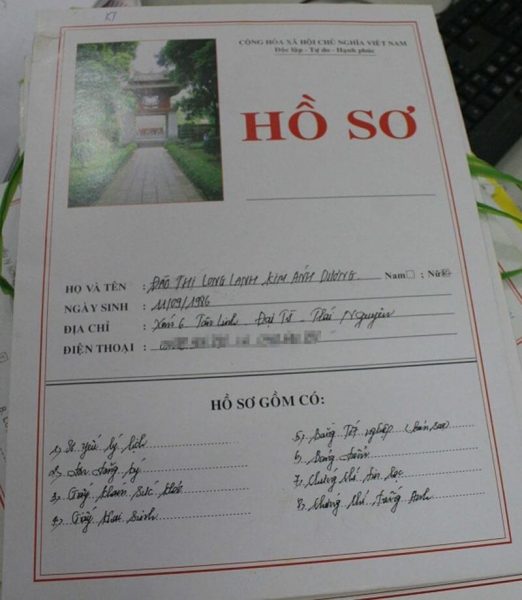 KT
CỘNG HÒA XÃ HỘI CHỦ NGHĨA VIỆT NAM
Độc lập - Tự do - Hạnh phúc
HỒ SƠ
HỌ VÀ TÊN : ĐÀO THỊ LONG LANH KIM ÁNH DƯƠNG Nam : Nữ
NGÀY SINH : 11/09/1986
ĐỊA CHỈ : Xóm 6 Tân Linh - Đại Từ - Thái Nguyên
ĐIỆN THOẠI :
HỒ SƠ GỒM CÓ:
1, Sơ yếu lý lịch
2, Đơn đăng ký
3, Giấy khám sức khỏe
4, Giấy khai sinh
5, Bằng Tốt nghiệp (bản sao)
6, Bảng điểm
7, Chứng chỉ tin học
8, Chứng chỉ Tiếng Anh